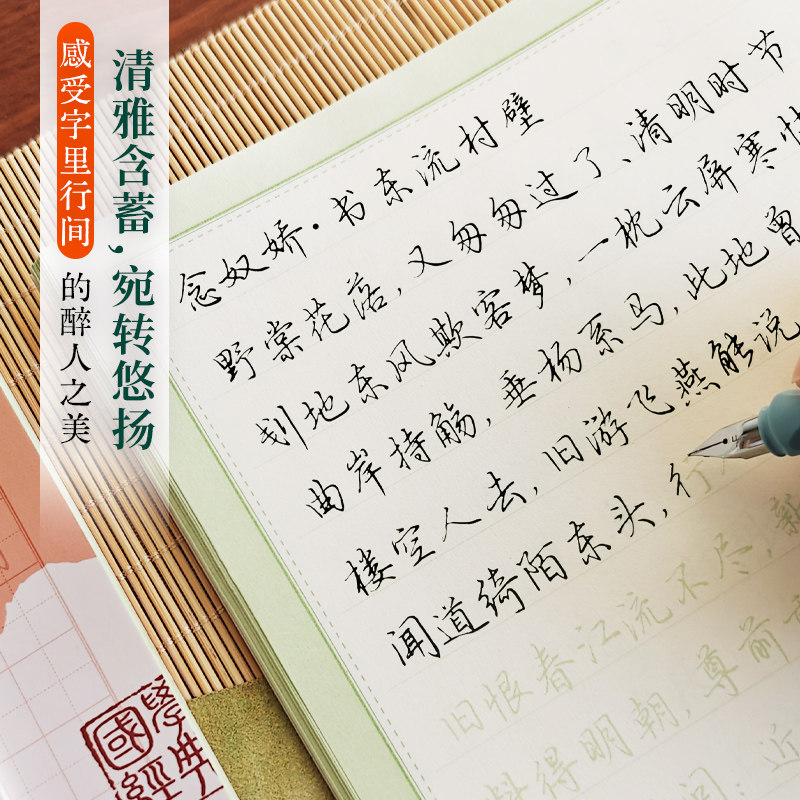 清雅含蓄,宛转悠扬
感受字里行间
的醉人之美
念奴娇·书东流村壁
野棠花落,又匆匆过了、清明时节
划地东风欺客梦,一枕云屏寒
曲岸持觞,垂杨系马,此地曾
楼空人去,旧游飞燕能说
闻道绮陌东头,行
旧恨春江流不尽,新
料得明朝,尊前
问:近
國學
經典